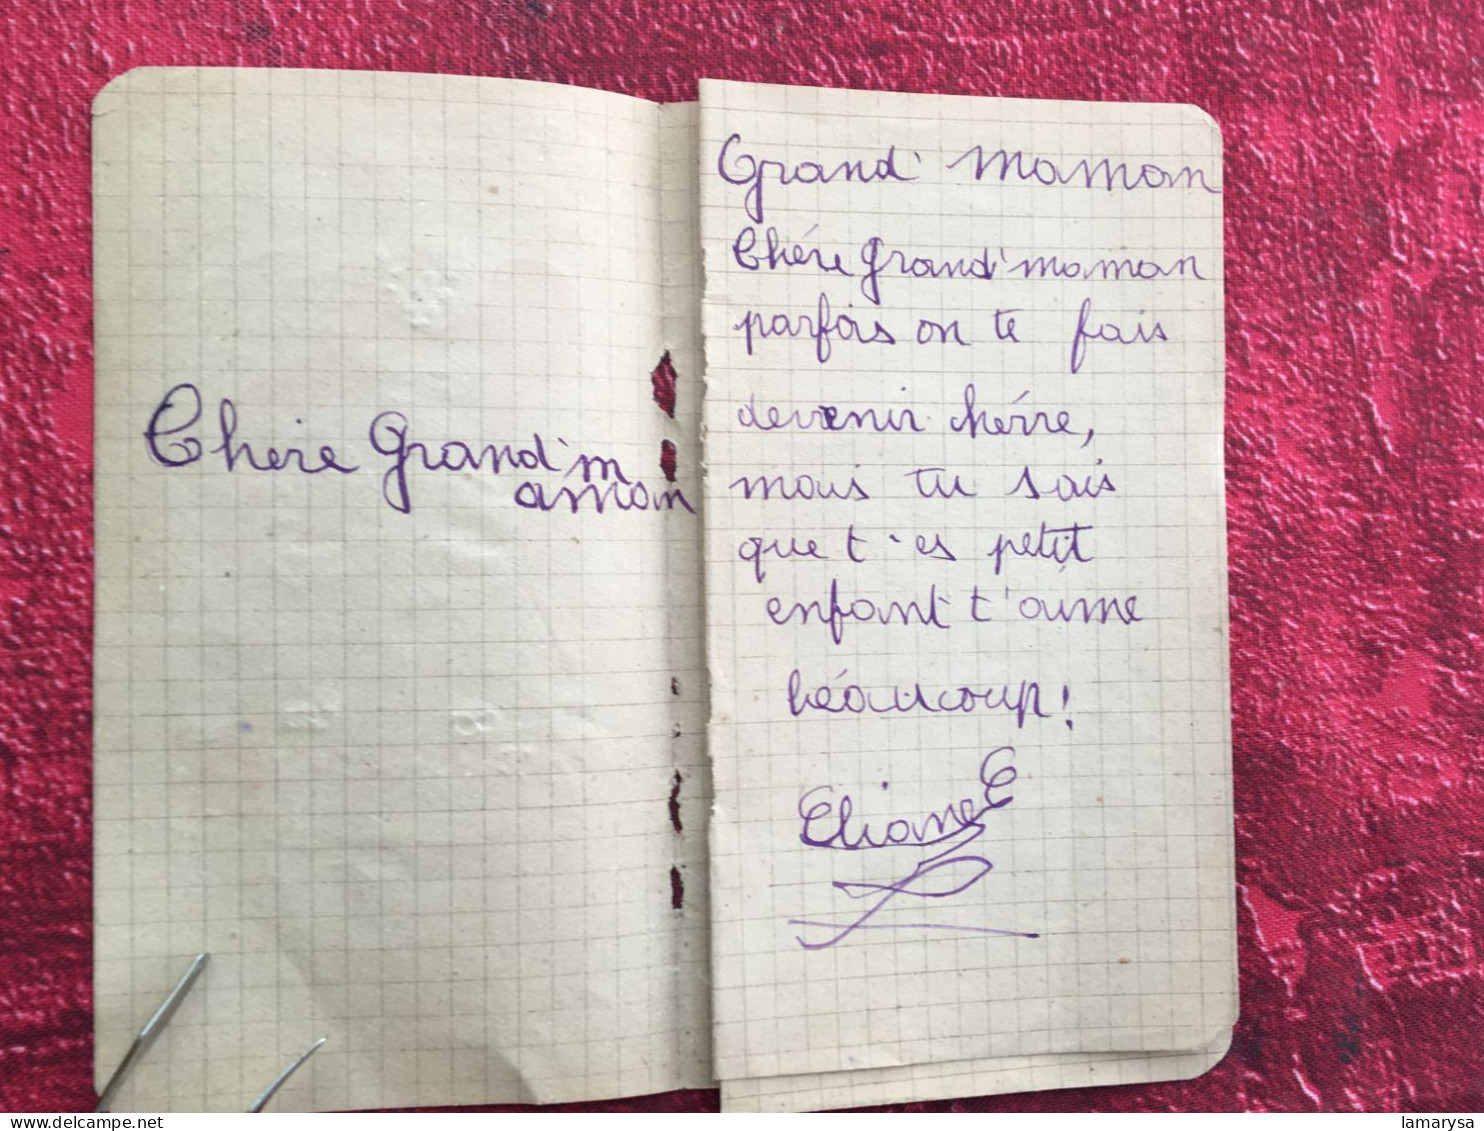 Chère Grand'm
aman
Grand' maman
Chére Grand'maman
parfois on te fais
devenir chérre,
mais tu sais
que t'es petit
enfant t'aime
béaucoup!
Eliane E
delcampe.net
lamarysa